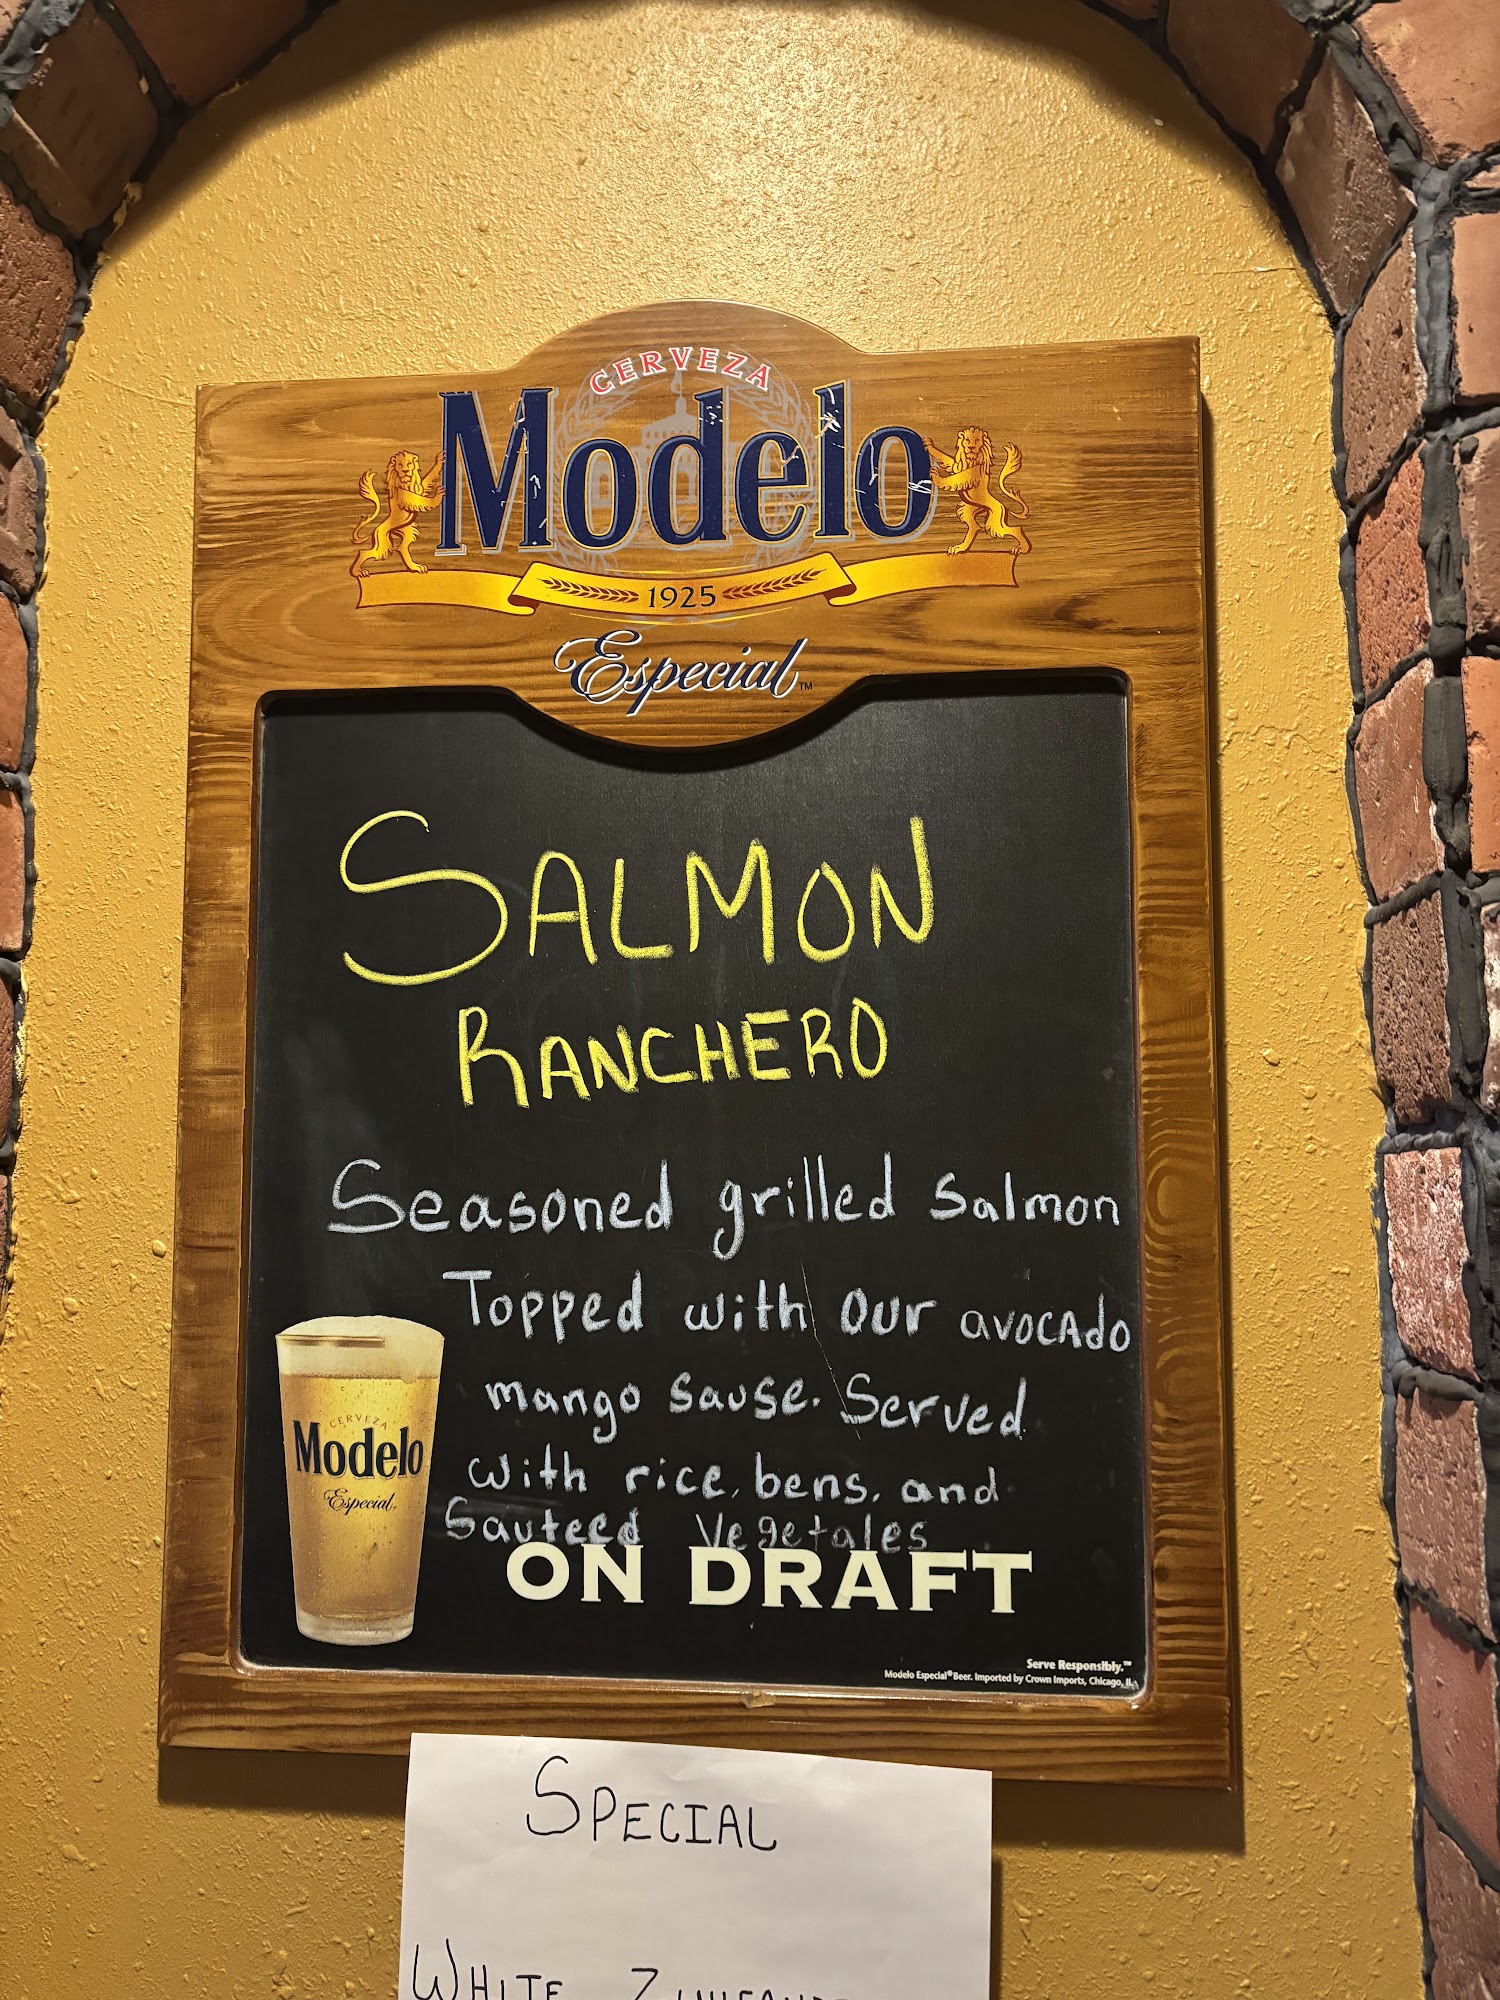 CERVEZA
Modelo
1925
Especial™
SALMON
RANCHERO
Seasoned grilled Salmon
Topped with our avocado
mango sause. Served
with rice, bens, and
Sauteed Vegetales
CERVEZA
Modelo
Especial
ON DRAFT
Serve Responsibly.™
Modelo Especial® Beer. Imported by Crown Imports, Chicago, IL
SPECIAL
WHITE